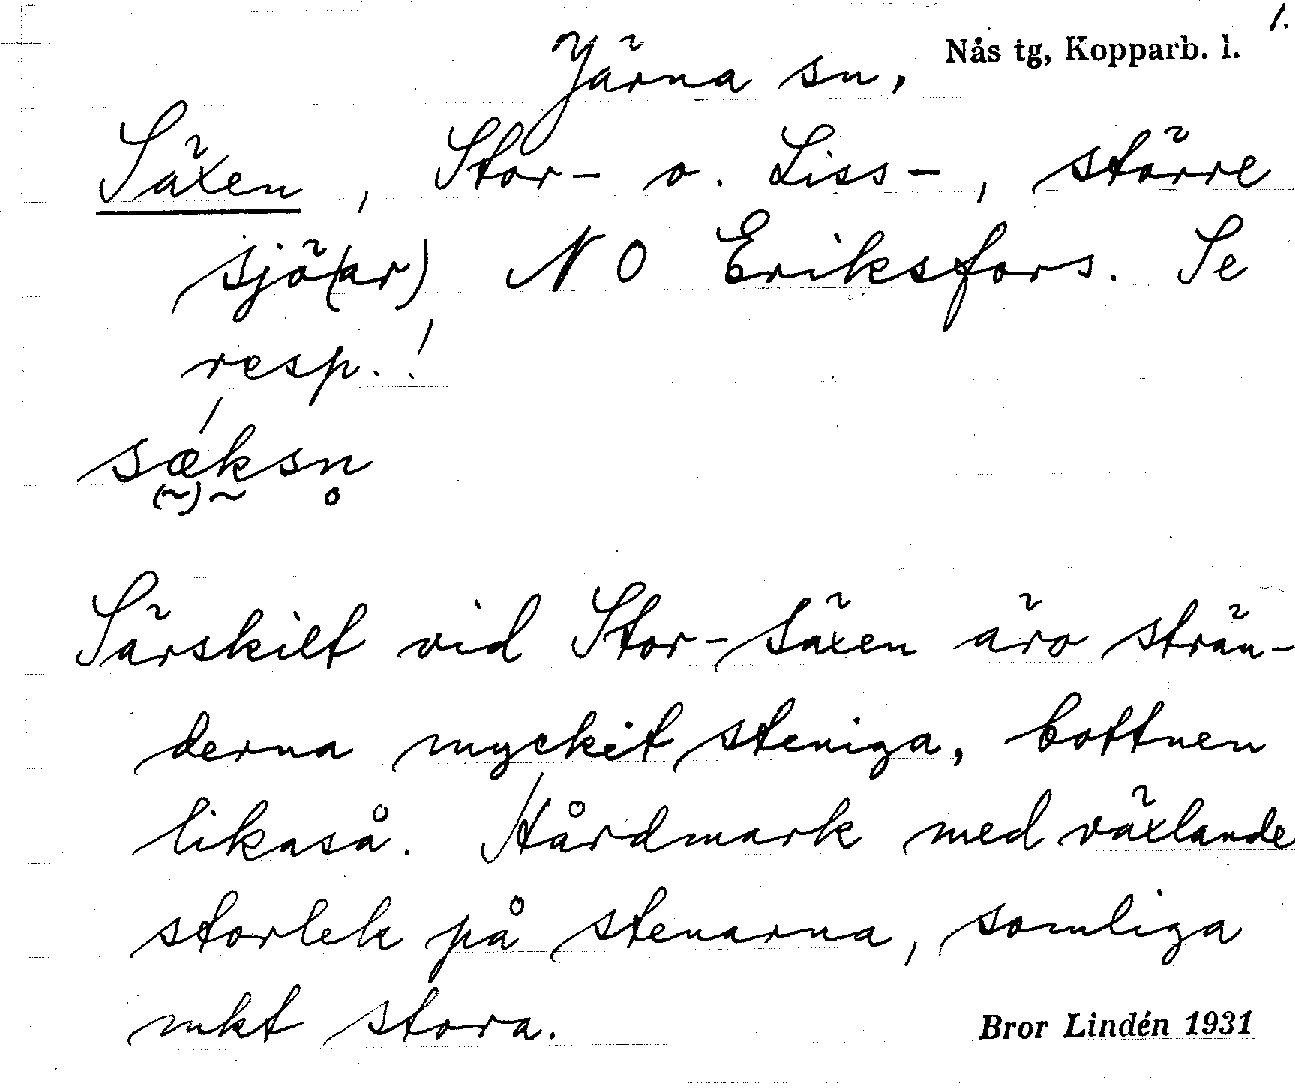 1.
Järna sn, Nås tg, Kopparb. l.
Säxen, Stor- o. Liss-, större
sjö(ar) NO Eriksfors. Se
resp.!
sæksn̥
Särskilt vid Stor-Säxen äro strän-
derna myckit steniga, bottnen
likaså. Hårdmark med växlande
storlek på stenarna, somliga
mkt stora.
Bror Lindén 1931